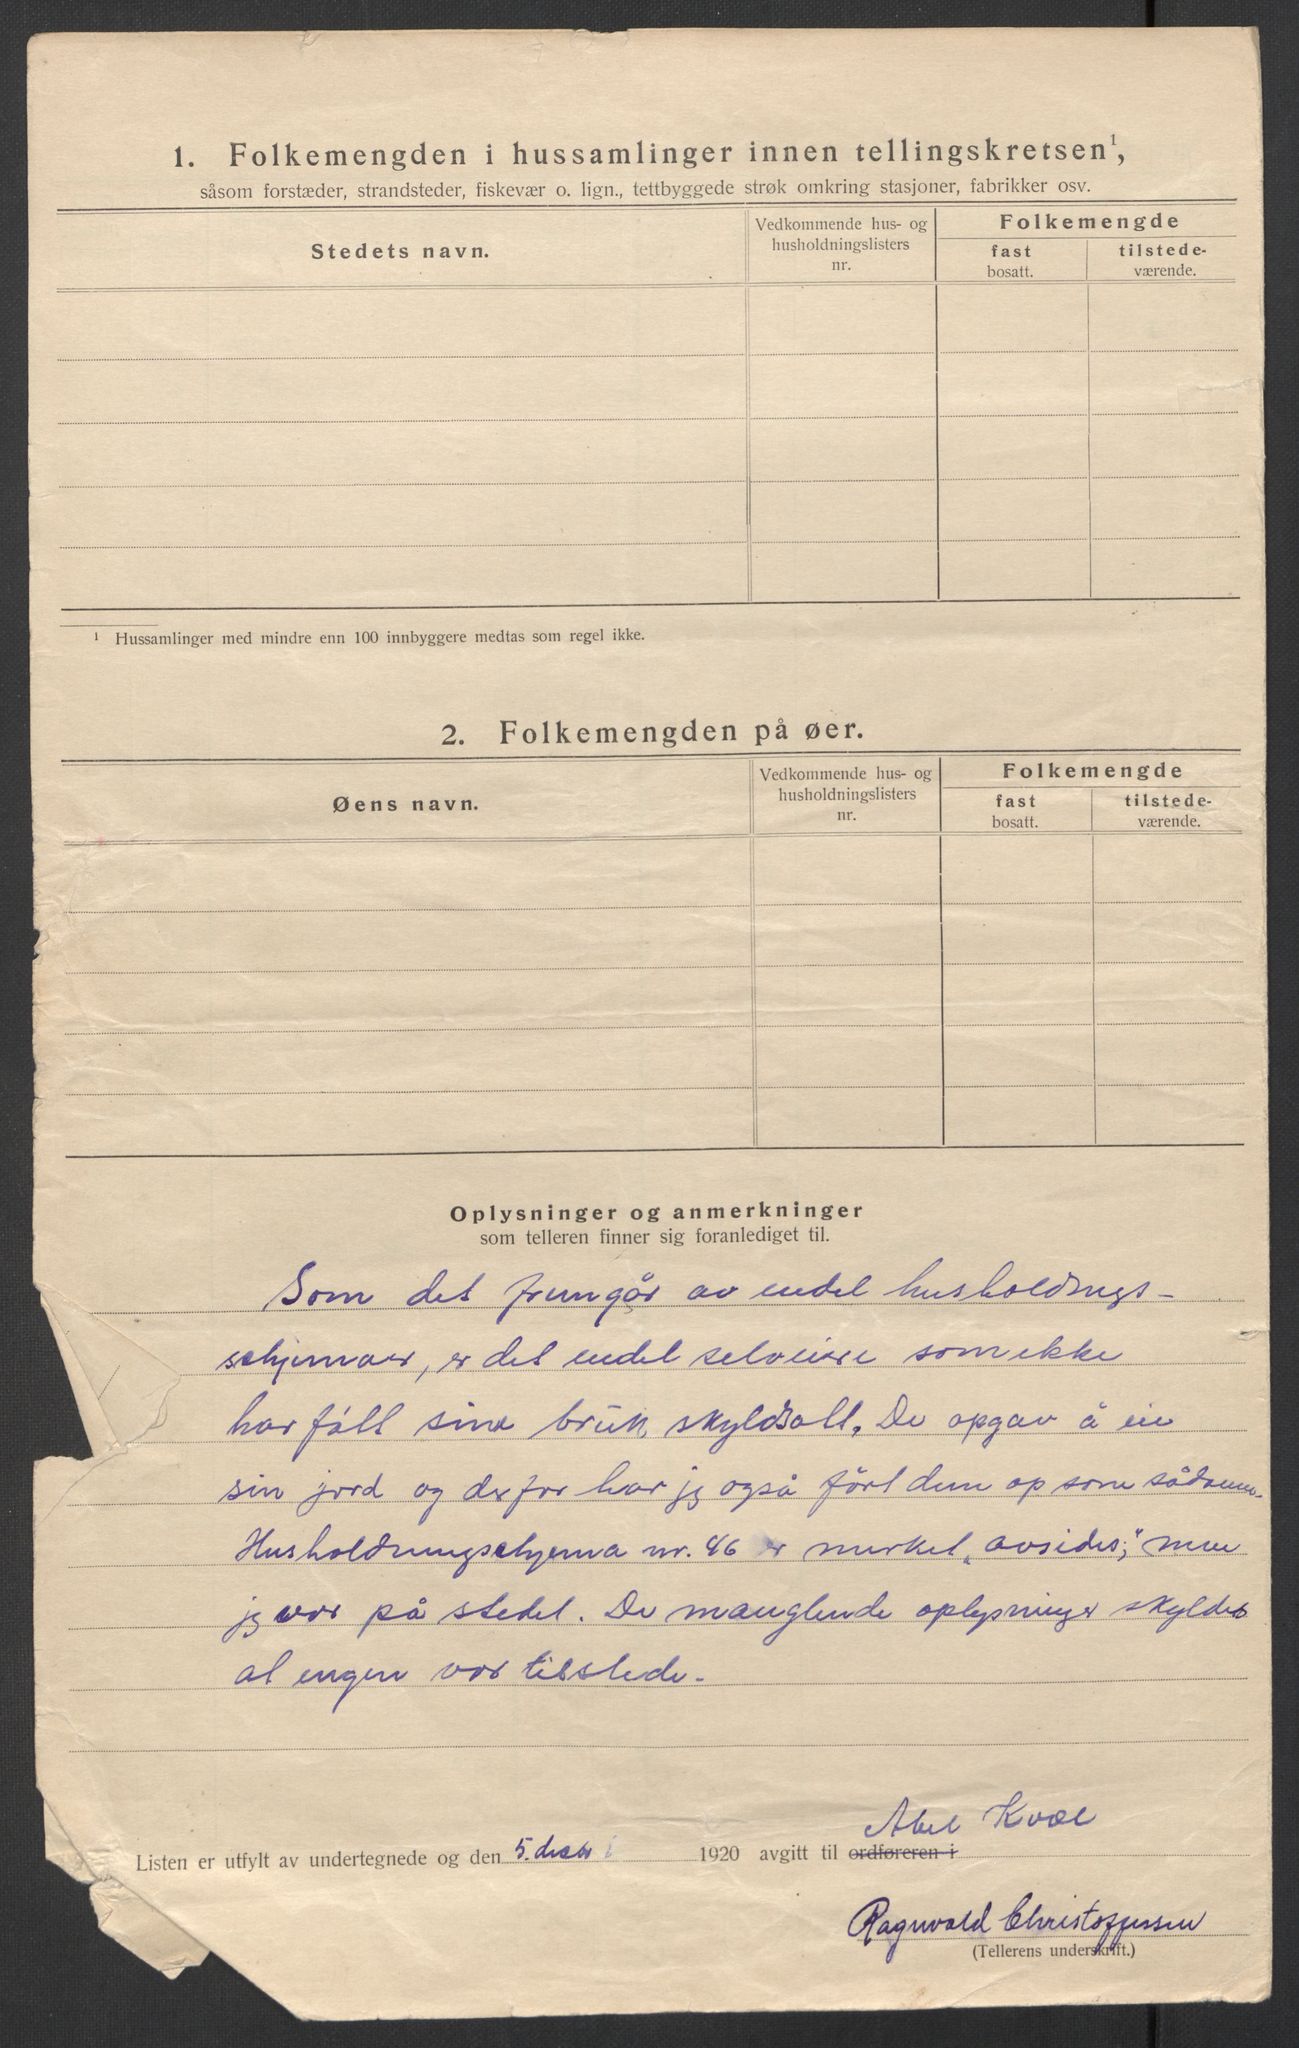 1. Folkemengden i hussamlinger innen tellingskretsen¹,
såsom forstæder, strandsteder, fiskevær o. lign., tettbyggede strøk omkring stasjoner, fabrikker osv.
Stedets navn.
Vedkommende hus- og
husholdningslisters
nr.
Folkemengde
fast
bosatt.
tilstede-
værende.
¹ Hussamlinger med mindre enn 100 innbyggere medtas som regel ikke.
2. Folkemengden på øer.
Øens navn.
Vedkommende hus- og
husholdningslisters
nr.
Folkemengde
fast
bosatt.
tilstede-
værende.
Oplysninger og anmerkninger
som telleren finner sig foranlediget til.
Som det fremgår av endel husholdnings-
schjemaer, er det endel selveiere som ikke
har fått sine bruk skyldsatt. De opgav å eie
sin jord og derfor har jeg også fört dem op som sådanne.
Husholdningschjema nr. 46 er merket „avsides“, men
jeg var på stedet. De manglende oplysninger skyldes
at ingen var tilstede.
Listen er utfylt av undertegnede og den 5. desbr 1920 avgitt til ordføreren i
Abel Kvæl
Ragnvald Christoffersen
(Tellerens underskrift.)